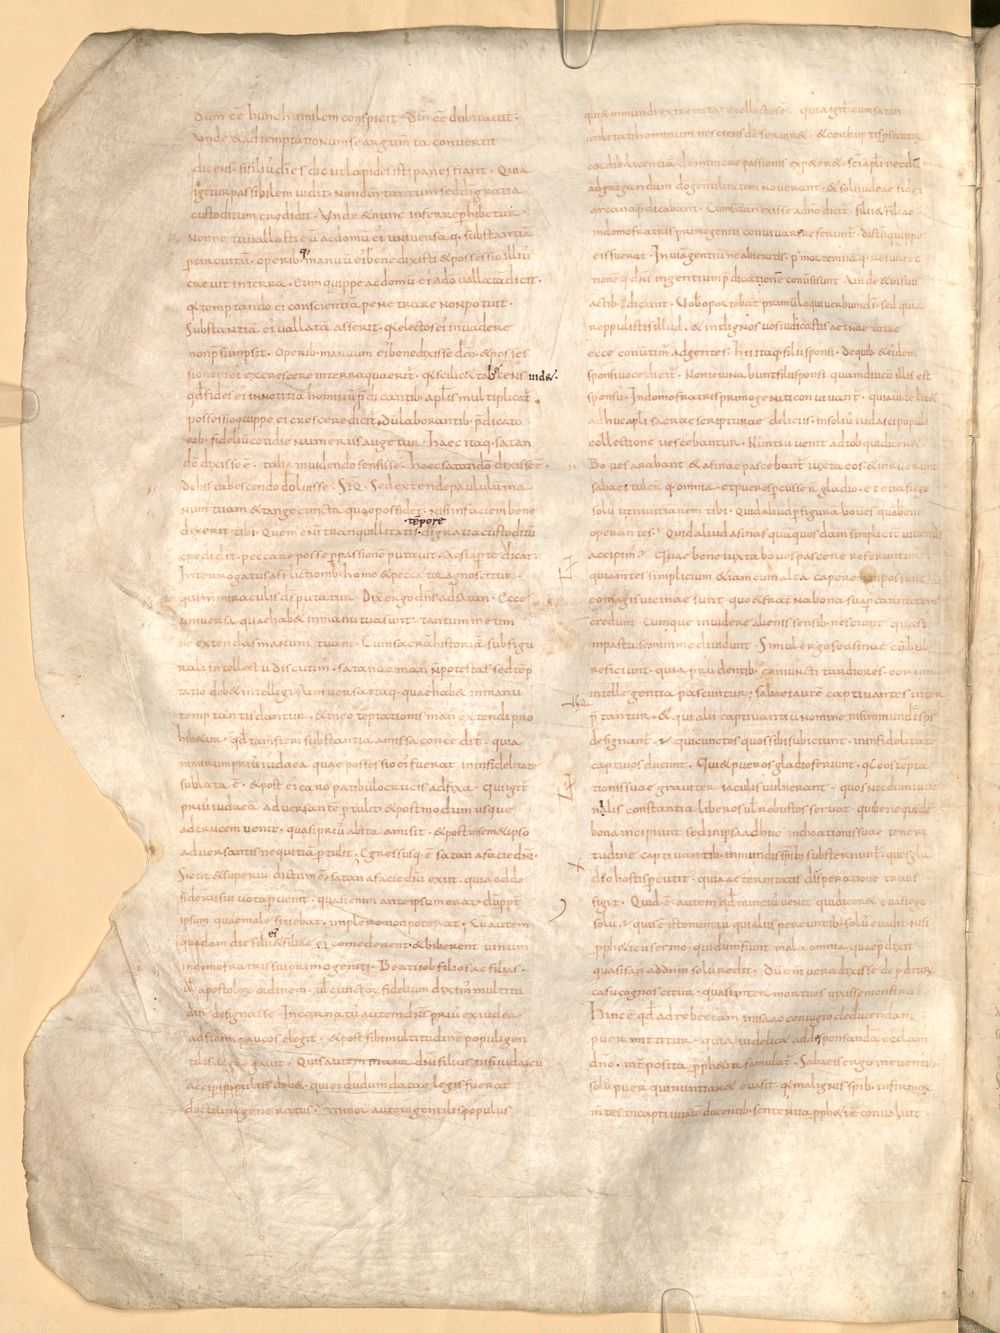 dum eẽ hunc humilem conspicit · dm̃ eẽ dubitauit ·
Unde & ad temptationum se argum̃ta conuertit
dicens · si filius di es dic ut lapides isti panes fiant · Quia
igitur passibilem uidit · Non dm̃ tantum sed di gratia
custoditum credidit · Unde & nunc inferre phibetur ·
Nonne tu uallasti eũ ac domũ ei' uniuersa q · substantiã
per circuitũ · operib' manuũ ei' benedixisti & possessio illiu'
creuit in terra · Cum quippe ac domũ ei' a dõ uallatã dicit ·
q temptando ei' conscientiã penetrare non potuit ·
Substantiã ei' uallatã asserit · q electos ei' inuadere
non p̃sumpsit · Operib' manuum ei' benedixisse dm̃ · & posses
sionẽ ei' excrescere in terra quaerit · q scilic& tabescens uid& ·
qd fides ei' in notitiã hominũ p̃dicantib' aplis multiplicat̃
possessio quippe ei' crescere dicit · dũ laborantib' p̃dicato
rib' fideliũ cotidie numerus augetur · haec itaq · satan
dõ dixisse ẽ · talia inuidendo sensisse · haec satan dõ dixisse ẽ ·
de his tabescendo doluisse · Seq̃ · Sed extende paululũ ma
num tuam & tange cuncta quae possid& · Nisi in faciem bene
dixerit tibi · Quem enĩ tranquillitatis tẽpore di gratia custoditũ
credidit · peccare posse p passionẽ putauit · Ac si apte dicat ·
Interrogatus afflictionib' homo & peccator agnoscetur ·
qui in miraculis dĩ putatur · Dixit ergo dñs ad satan · Ecce
uniuersa quae hab& in manu tua sunt · tantum in eum
ne extendas manum tuam · Cum sacrã historiã sub figu
rali intellectu discutim' · satanae manũ
tatio deb& intelligi · Uniuersa itaq · quae hab& in manu
temptantis dantur · & in eo
hibetur · qd tamen fieri substantia amissa concedit · quia
nimirum prius iudaea quae possessio ei fuerat in infidelitate
sublata ẽ · & post ei' caro patibulo crucis adfixa · Qui igit̃
prius iudaeã aduersantẽ p̃tulit & postmodum usque
ad crucem uenit · quasi prius abita amisit · & post in semet ipso
aduersantis nequitiã p̃tulit · Egressusq · ẽ satan a facie dni ·
Sicut & superiu' dictum ẽ · satan a facie dni exiit · quia ad de
siderii sui uota p̃uenit · quasi enim ante ipsum erat · dũ ppt̃
ipsum quae male sitiebat · implere non poterat · Cũ autem
quadam die filii & filiae ei' comederent & biberent uinum
in domo fratris sui primogeniti · Beati iob filios ac filias ·
apostolor ordinem · ul cunctor fidelium diximus multitu
dinẽ designasse · Incarnatus autem dñs prius ex iudaea
ad fidem paucos elegit · & post sibi multitudinẽ populi gen
tilis agregauit · Quis autem maior dni filius nisi iudaicus
accipi populus deb& · qui ei dudum data e legis fuerat
doctrina generatus · minor autem gentilis populus
qui & in mundi extremitate collectus ẽ · quia igit̃ cum satan
utilitati hominum nesciens deseruir& · & corruptis p̃secutor
cordib' licentiã dominicae passionis exp&er& · sci apli necdũ
adgregandam do gentilitatem nouerant · & soli iudaeae fidei
arcana p̃dicabant · Cum satan exisse a dño dicit̃ · filii & filiae
in domo fratris primogeniti conuiuare referunt̃ · dictũ quippe
eis fuerat · In uiã gentiũ ne abieritis · p' mortem namq · resurrec
tionẽ q · dni in gentium p̃dicationẽ conuersi sunt · Unde & in suis
actib' dicunt · Uob' oportebat primũ loqui uerbum di · sed quia
reppulistis illud · & indignos uos iudicastis aeternae uitae
ecce conuertim' ad gentes · hii itaq · filii sponsi · de quib' & eidem
sponsi uoce dicit̃ · Non ieiunabunt filii sponsi quamdiu cũ illis est
sponsus · In domo fratris primogeniti conuiuant · quia uidelic&
adhuc apli sacrae scripturae deliciis · in soliu' iudaici populi
collectione uescebantur · Nuntiu' uenit ad iob qui dicer& ·
Boues arabant & asinae pascebant̃ iuxta eos & inruerunt
sabaei tuler q · omnia · et pueros percusser gladio · et euasi ego
solu' ut nuntiarem tibi · Quid aliud p figura boues qua bene
operantes · Quid aliud asinas qua quosdam simplicit̃ uiuentes
accipim' · Quae bene iuxta boues pascere referuntur
quia mentes simplicium &iam cum alta capere non possunt
eo magis uicinae sunt quo & fratrũ bona sua p caritatem
credunt · Cumque inuidere alienis sensib' nesciunt quasi
in pastu se a nimine diuidunt · Simul ergo se asinae cũ bub'
reficiunt · quia prudentib' coniuncti tardiores · eorum
intellegentia pascuntur · sabaei autẽ captiuantes inter
p̃tantur · & qui alii captiuantiũ nomine nisi inmundi sps
designant̃ · qui cunctos quos sibi subiciunt · in infidelitate
captiuos ducunt · Qui & pueros gladio feriunt · q eos tẽpta
tionis suae grauiter iaculis uulnerant · quos necdum iuue
nalis constantia liberos ul robustos seruat · qui bene quidẽ
bona incipiunt sed in ipsa adhuc inchoationis suae teneri
tudine captiuantib' inmundis spib' substernunt̃ · quos gla
dio hostis p̃cutit · quia aeternitatis disperatione trans
figit · Quid ẽ autem qd nuntiu' uenit qui diceret euasi ego
solu' · quis ẽ iste nuntiu' qui aliis pereuntib' · solu' euadit nisi
pph&icus sermo · qui dum fiunt mala omnia quae p̃dixit
quasi san' ad dnm solu' redit · Dũ enĩ uera dixisse de p̃ditor
casu cognoscitur · quasi inter mortuos uixisse monstrat̃
Hinc ẽ qd ad rebeccam in isaac coniugio deducendam
puer mittitur · quia uidelic& ad dĩsponsandã ecclam
dño · int̃posita p ph&ia famulat̃ · Sabaeis ergo inruentib'
solu' puer qui nuntiar& euasit · q malignis spib' infirmor
mtes in captiuitatẽ ducentib' sententia pph&iae conualuit ·